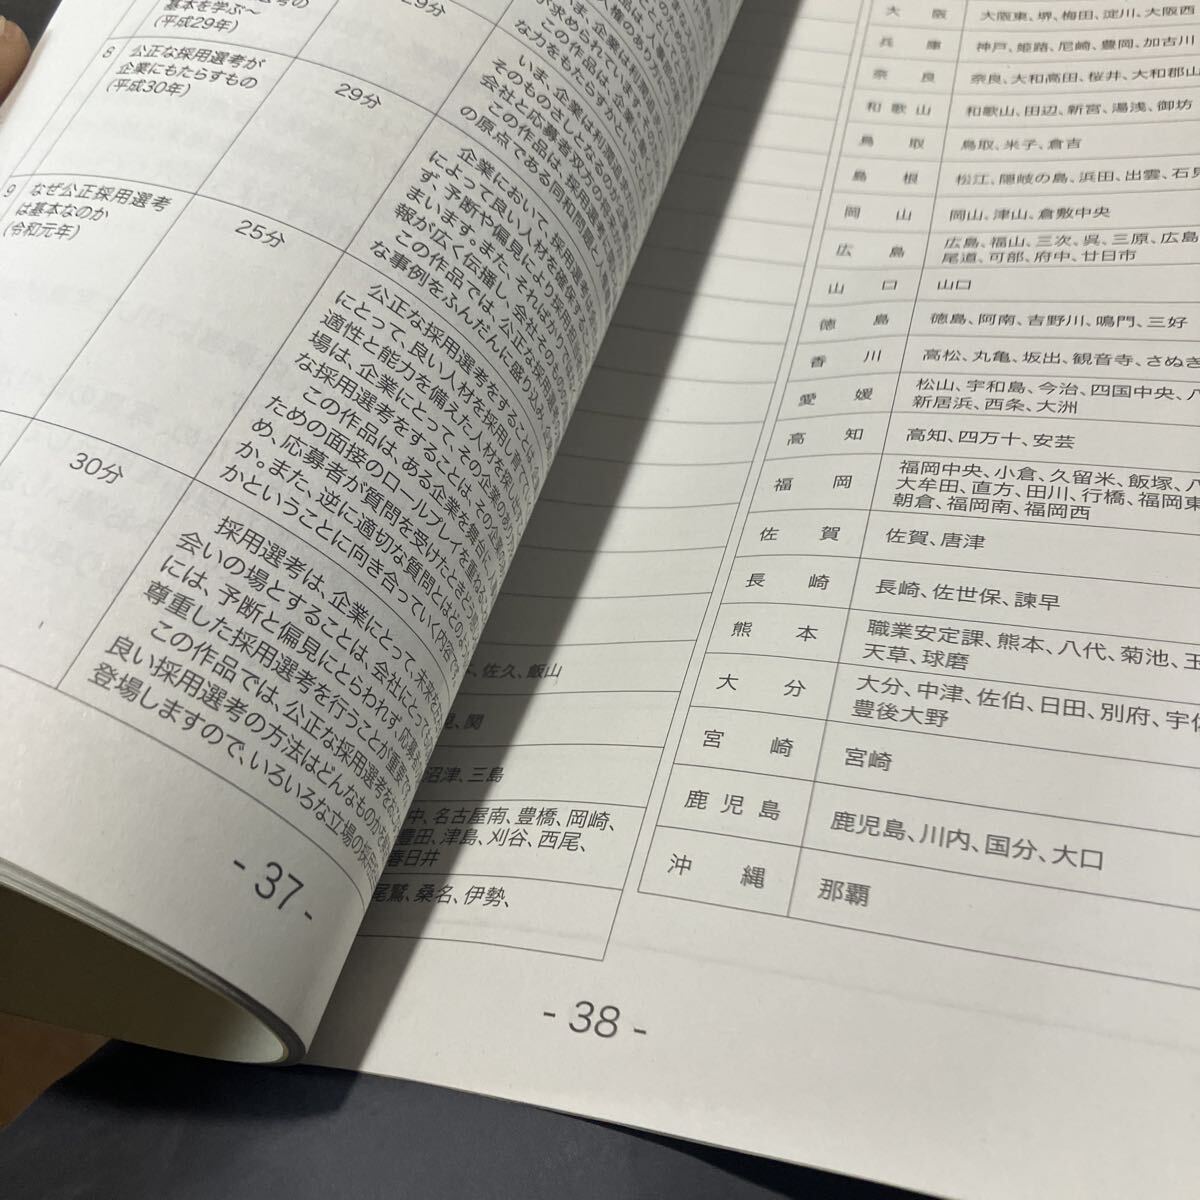 基本を学ぶ～
(平成29年)
29分
8 公正な採用選考が
企業にもたらすもの
(平成30年)
29分
9 なぜ公正採用選考
は基本なのか
(令和元年)
25分
30分
いま、企業は利潤
そのものさしとなるの
会社と応募者双方の得
この作品は、採用選
の原点である同和問題と
企業において、採用選考は
によって良い人材を確保する
ず、予断や偏見により採用選
まいます。また、そればかりで
報が広く伝播し、会社そのもの
この作品では、公正な採用選考
な事例をふんだんに盛り込み
公正な採用選考をすることは、企
にとって、良い人材を採用し、育て
適性と能力を備えた人材を探し出
場は、企業にとって、その企業のあり
な採用選考をすることは、その企業
この作品は、ある企業を舞台に、人
ための面接のロールプレイを重ね
め、応募者が質問を受けたときどう
か。また、逆に適切な質問とはどのよ
かということに向き合っていく内容です
採用選考は、企業にとって、未来を
会いの場とすることは、会社にとって
には、予断と偏見にとらわれず、応募者
尊重した採用選考を行うことが重要です
この作品では、公正な採用選考をおこ
良い採用選考の方法はどんなものかを
登場しますので、いろいろな立場の採用
- 37 -
、佐久、飯山
、関
沼津、三島
中、名古屋南、豊橋、岡崎、
豊田、津島、刈谷、西尾、
春日井
尾鷲、桑名、伊勢、
大阪 大阪東、堺、梅田、淀川、大阪西
兵庫 神戸、姫路、尼崎、豊岡、加古川
奈良 奈良、大和高田、桜井、大和郡山
和歌山 和歌山、田辺、新宮、湯浅、御坊
鳥取 鳥取、米子、倉吉
島根 松江、隠岐の島、浜田、出雲、石見
岡山 岡山、津山、倉敷中央
広島 広島、福山、三次、呉、三原、広島
尾道、可部、府中、廿日市
山口 山口
徳島 徳島、阿南、吉野川、鳴門、三好
香川 高松、丸亀、坂出、観音寺、さぬき
愛媛 松山、宇和島、今治、四国中央、八
新居浜、西条、大洲
高知 高知、四万十、安芸
福岡 福岡中央、小倉、久留米、飯塚、八
大牟田、直方、田川、行橋、福岡東
朝倉、福岡南、福岡西
佐賀 佐賀、唐津
長崎 長崎、佐世保、諫早
熊本 職業安定課、熊本、八代、菊池、玉
天草、球磨
大分 大分、中津、佐伯、日田、別府、宇佐
豊後大野
宮崎 宮崎
鹿児島 鹿児島、川内、国分、大口
沖縄 那覇
- 38 -